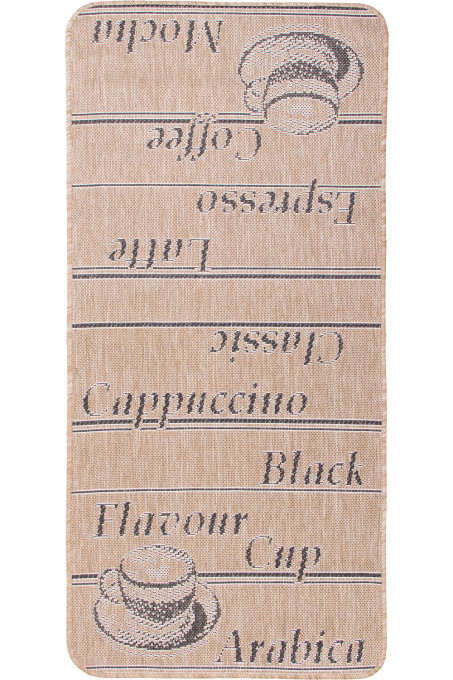 Mocha
Coffee
Espresso
Latte
Classic
Cappuccino
Black
Flavour
Cup
Arabica